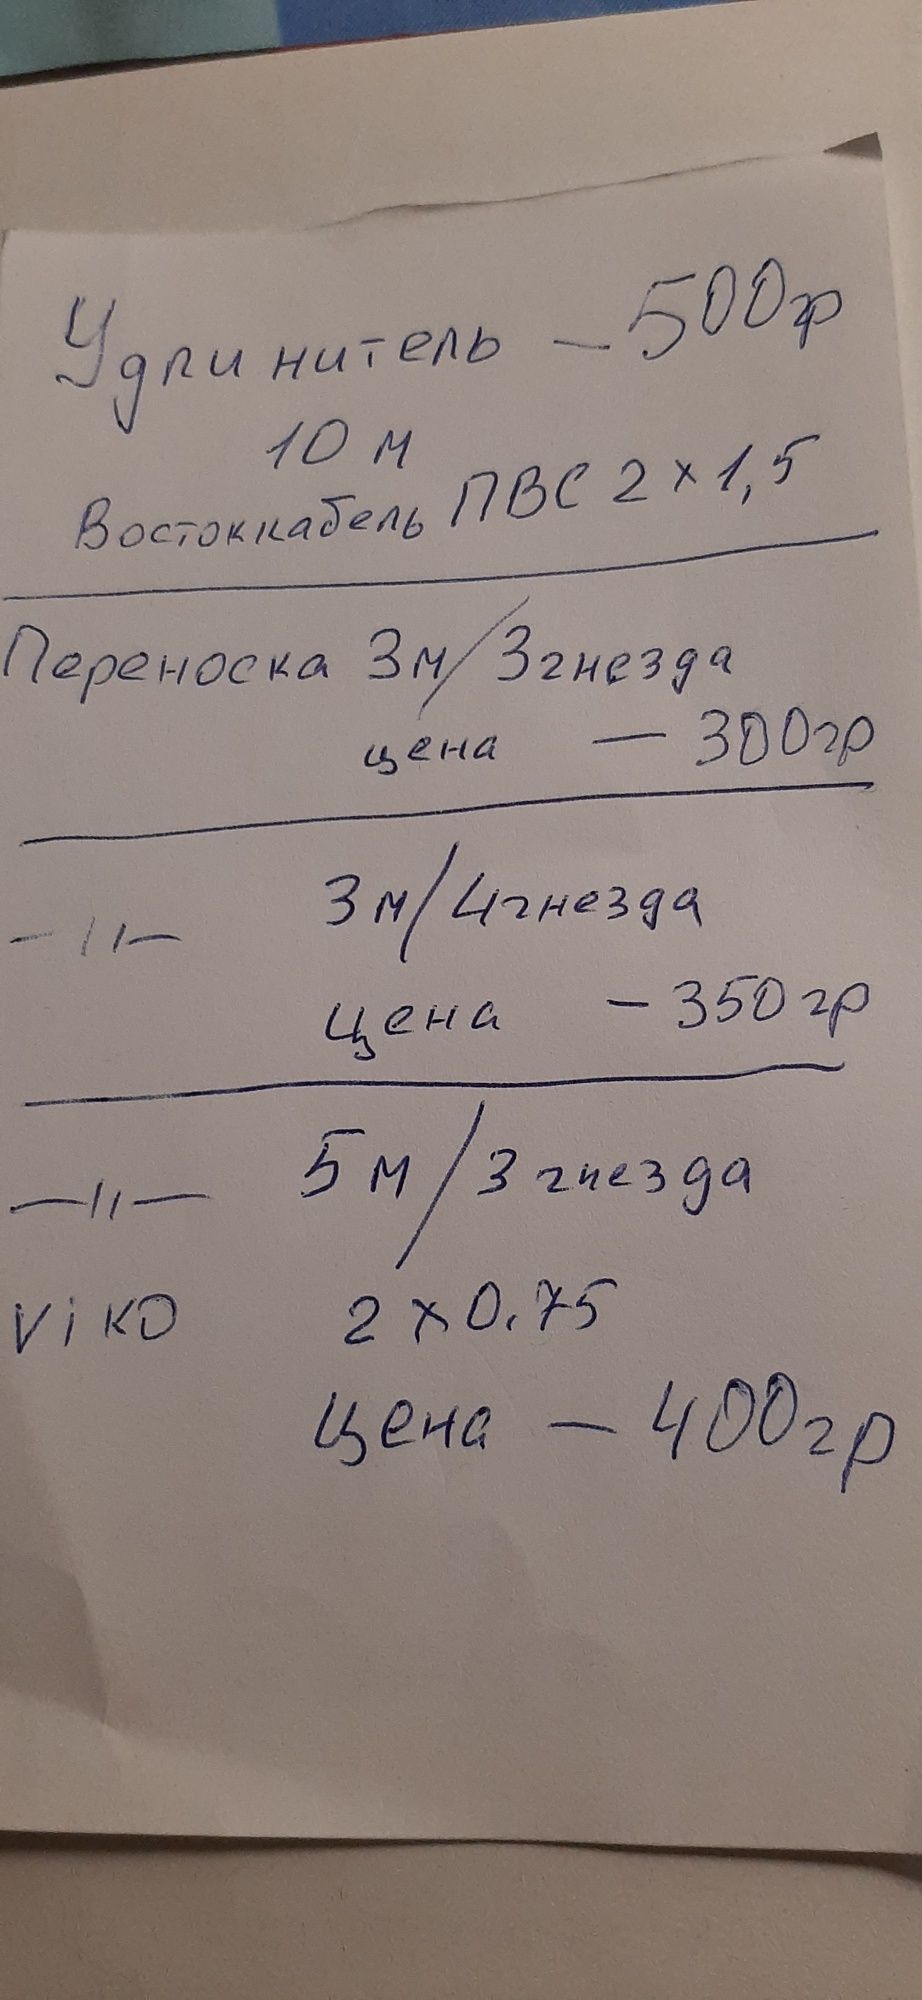 Удлинитель - 500гр
10 м
Востоккабель ПВС 2 х 1,5
Переноска 3м/3гнезда
цена - 300гр
-''- 3м/4гнезда
цена - 350гр
-''- 5м/3гнезда
ViKO 2 х 0.75
цена - 400гр